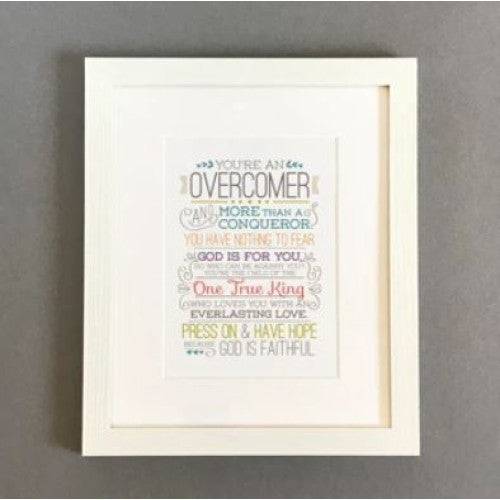 YOU'RE AN
OVERCOMER
AND MORE THAN A
CONQUEROR.
YOU HAVE NOTHNG TO FEAR
GOD IS FOR YOU,
SO WHO CAN BE AGAINST YOU?
YOU'RE THE CHILD OF THE
One True King
WHO LOVES YOU WITH AN
EVERLASTING LOVE.
PRESS ON & HAVE HOPE
BECAUSE GOD IS FAITHFUL.